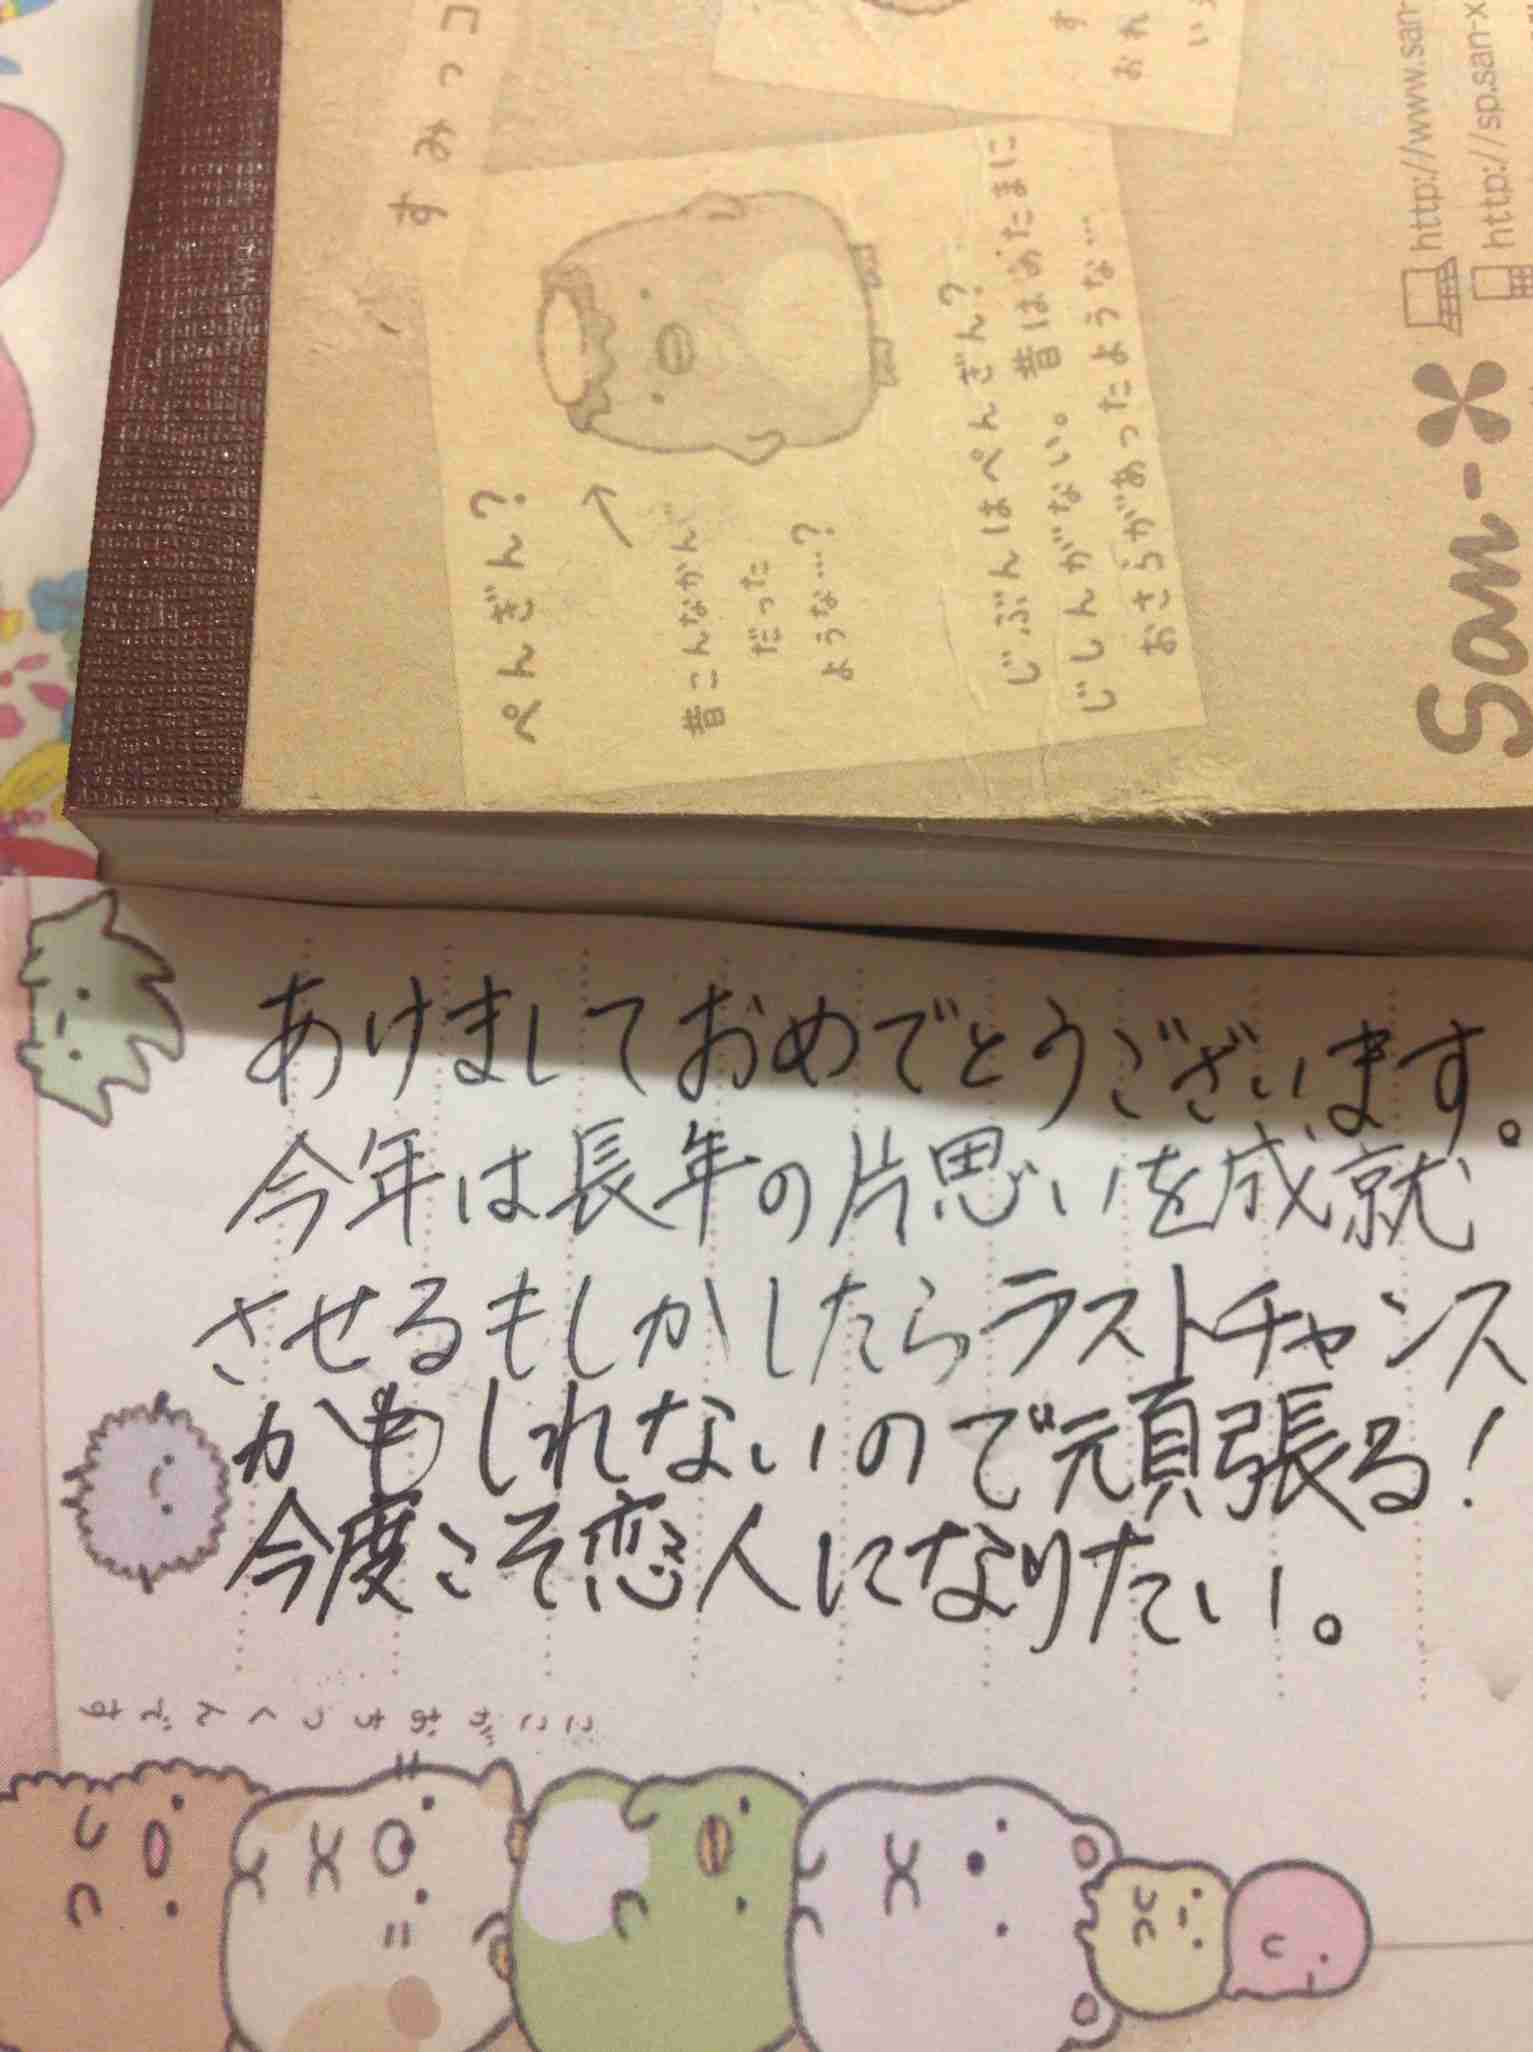 すみっコ
す
おれ
ぺんぎん?
昔こんなかんじ
だった
ような…?
じぶんはぺんぎん?
じしんがない。昔はあたまに
おさらがあったような…
San-X
http://www.san-
http://sp.san-x
あけましておめでとうございます。
今年は長年の片思いを成就
させるもしかしたらラストチャンス
かもしれないので頑張る!
今度こそ恋人になりたい。
ここがおちつくんです